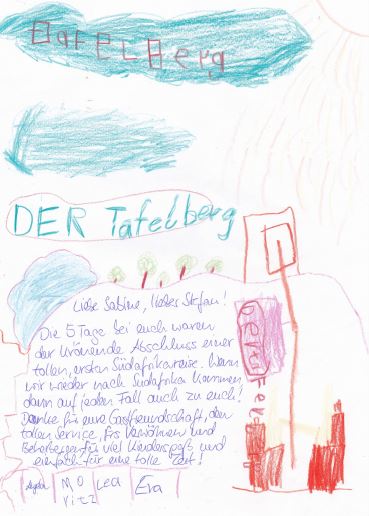 TafelBerg
DER Tafelberg
Liebe Sabine, lieber Stefan!
Die 5 Tage bei euch waren
der krönende Abschluss einer
tollen, ersten Südafrikareise. Wenn
wir wieder nach Südafrika kommen,
dann auf jeden Fall auch zu euch!
Danke für eure Gastfreundschaft, den
tollen Service, fürs Verwöhnen und
für viel Kinderspaß und
einfach für eine tolle Zeit!
Moritz
Lea
Eva